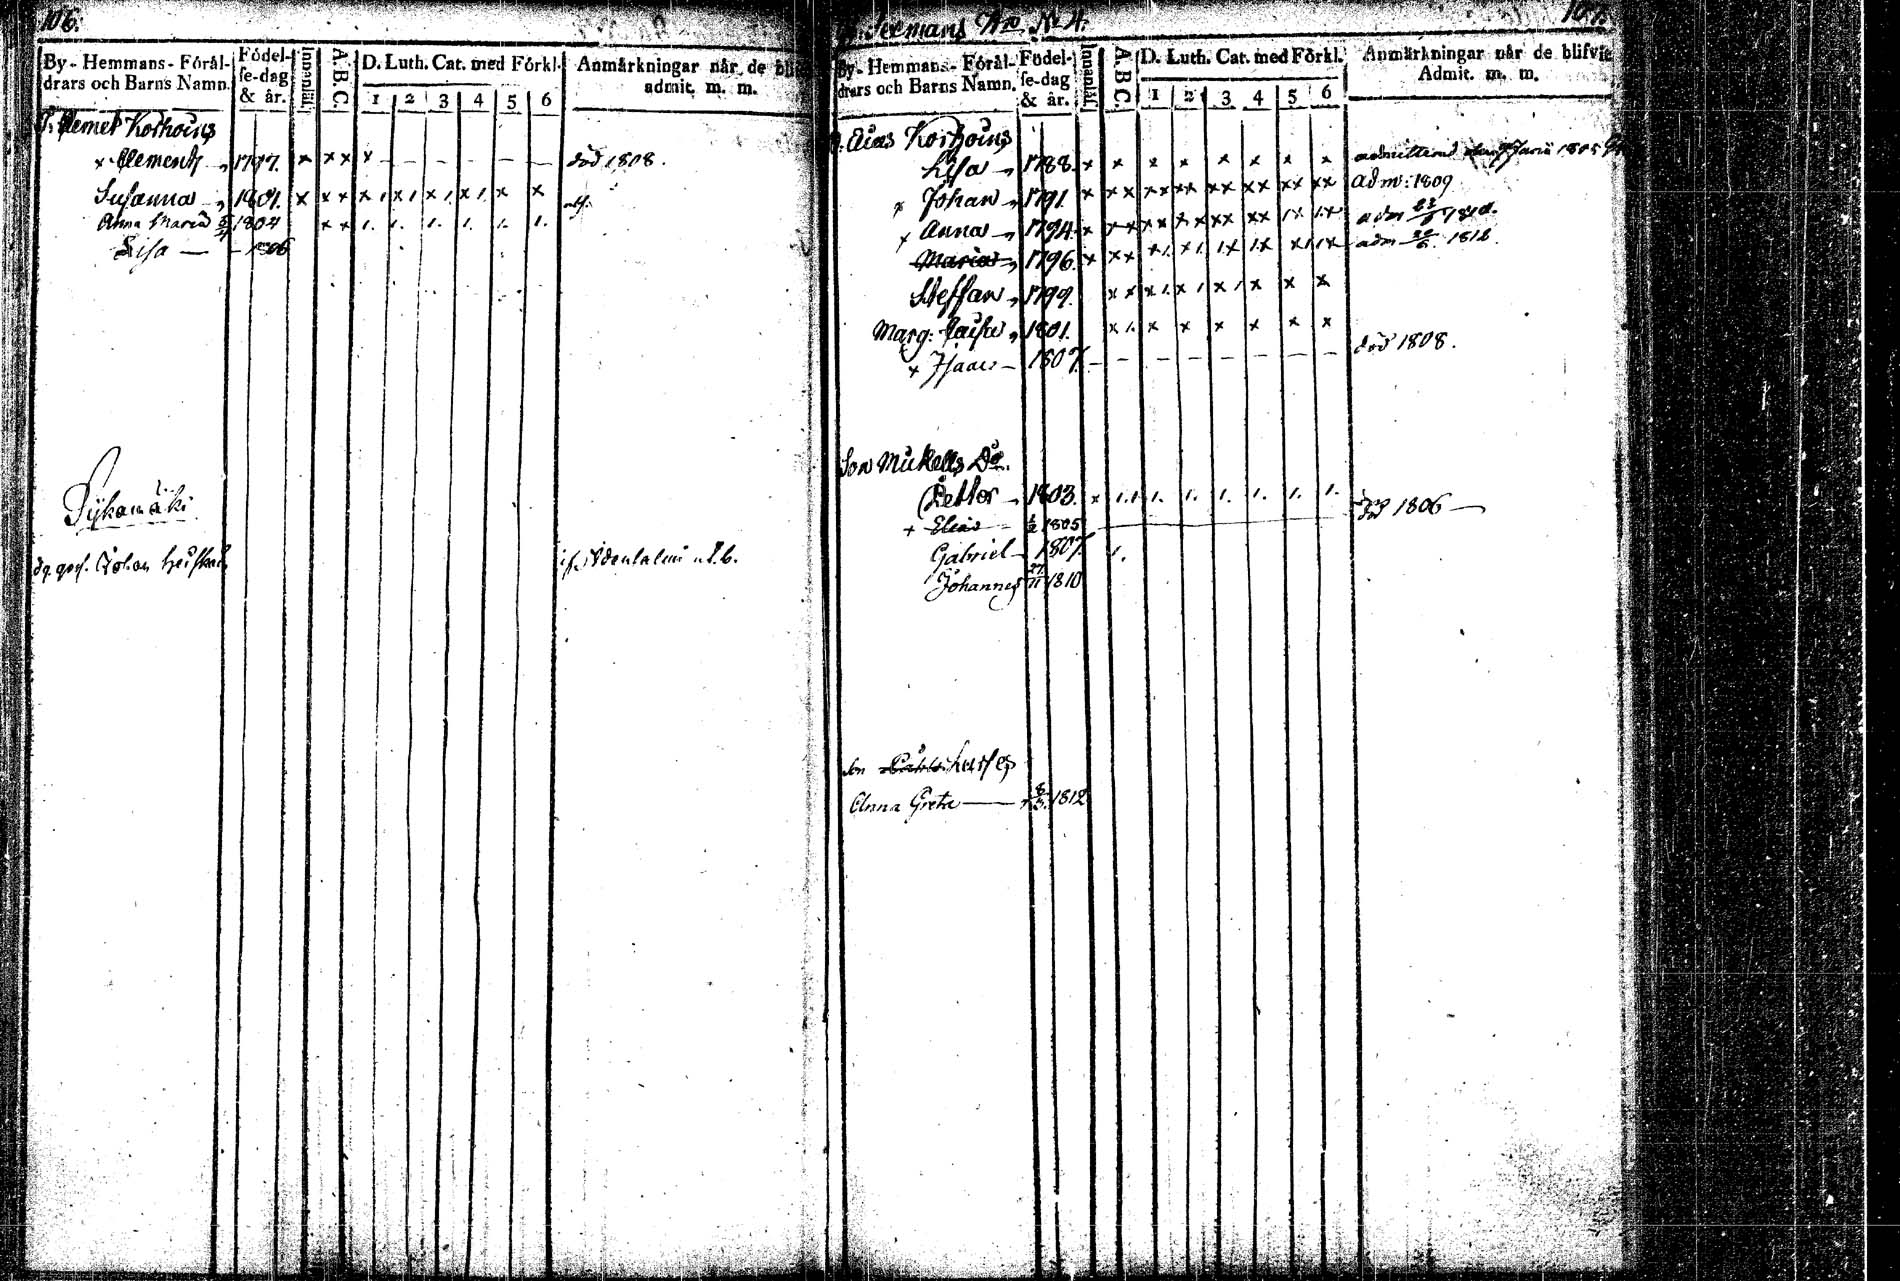 106.
By-Hemmans-Föräl-
drars och Barns Namn.
Födel-
se-dag
& år.
Innanläs.
A.B.C.
D. Luth. Cat. med Förkl.
1 2 3 4 5 6
Anmärkningar når de
admit. m. m.
Clemet Korhoins
x Clements 1797. x x x x – – – – – död 1808.
Susanna 1801. x x x x 1 x 1 x 1 x 1 x x
Anna Maria 1804 x x 1. 1. 1. 1. 1. 1.
Lisa — 1806
Pykämäki
Johan
107.
No 4.
By-Hemmans-Föräl-
drars och Barns Namn.
Födel-
se-dag
& år.
Innanläs.
A.B.C.
D. Luth. Cat. med Förkl.
1 2 3 4 5 6
Anmärkningar når de blifvit
Admit. m. m.
Elias Korhoins
Lisa 1788. x x x x x x x x 1805
x Johan 1791. x xx xx xx xx xx xx xx adm: 1809
x Anna 1794. x xx xx xx xx xx 1x 1x adm
Maria 1796. x xx x1. x1. 1x 1x x1 1x adm 1812.
Steffan 1799. xx x1. x1 x1 x x x
Marg: 1801. x1. x x x x x x
x Isaac – 1807. – – – – – – – – död 1808.
Son Mickells Do.
Petter 1803. x 1.1 1. 1. 1. 1. 1. 1.
+ Elias 1805 död 1806 —
Gabriel 1807. 1.
Johannes 27/11 1810
Son
Anna Greta — 8/3. 1812